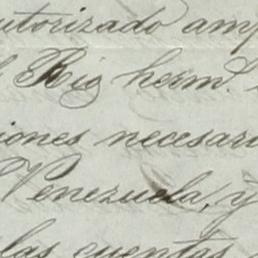 utorizado amp
Rig herm.
iones necesari
Venezuela, y
las cuentas